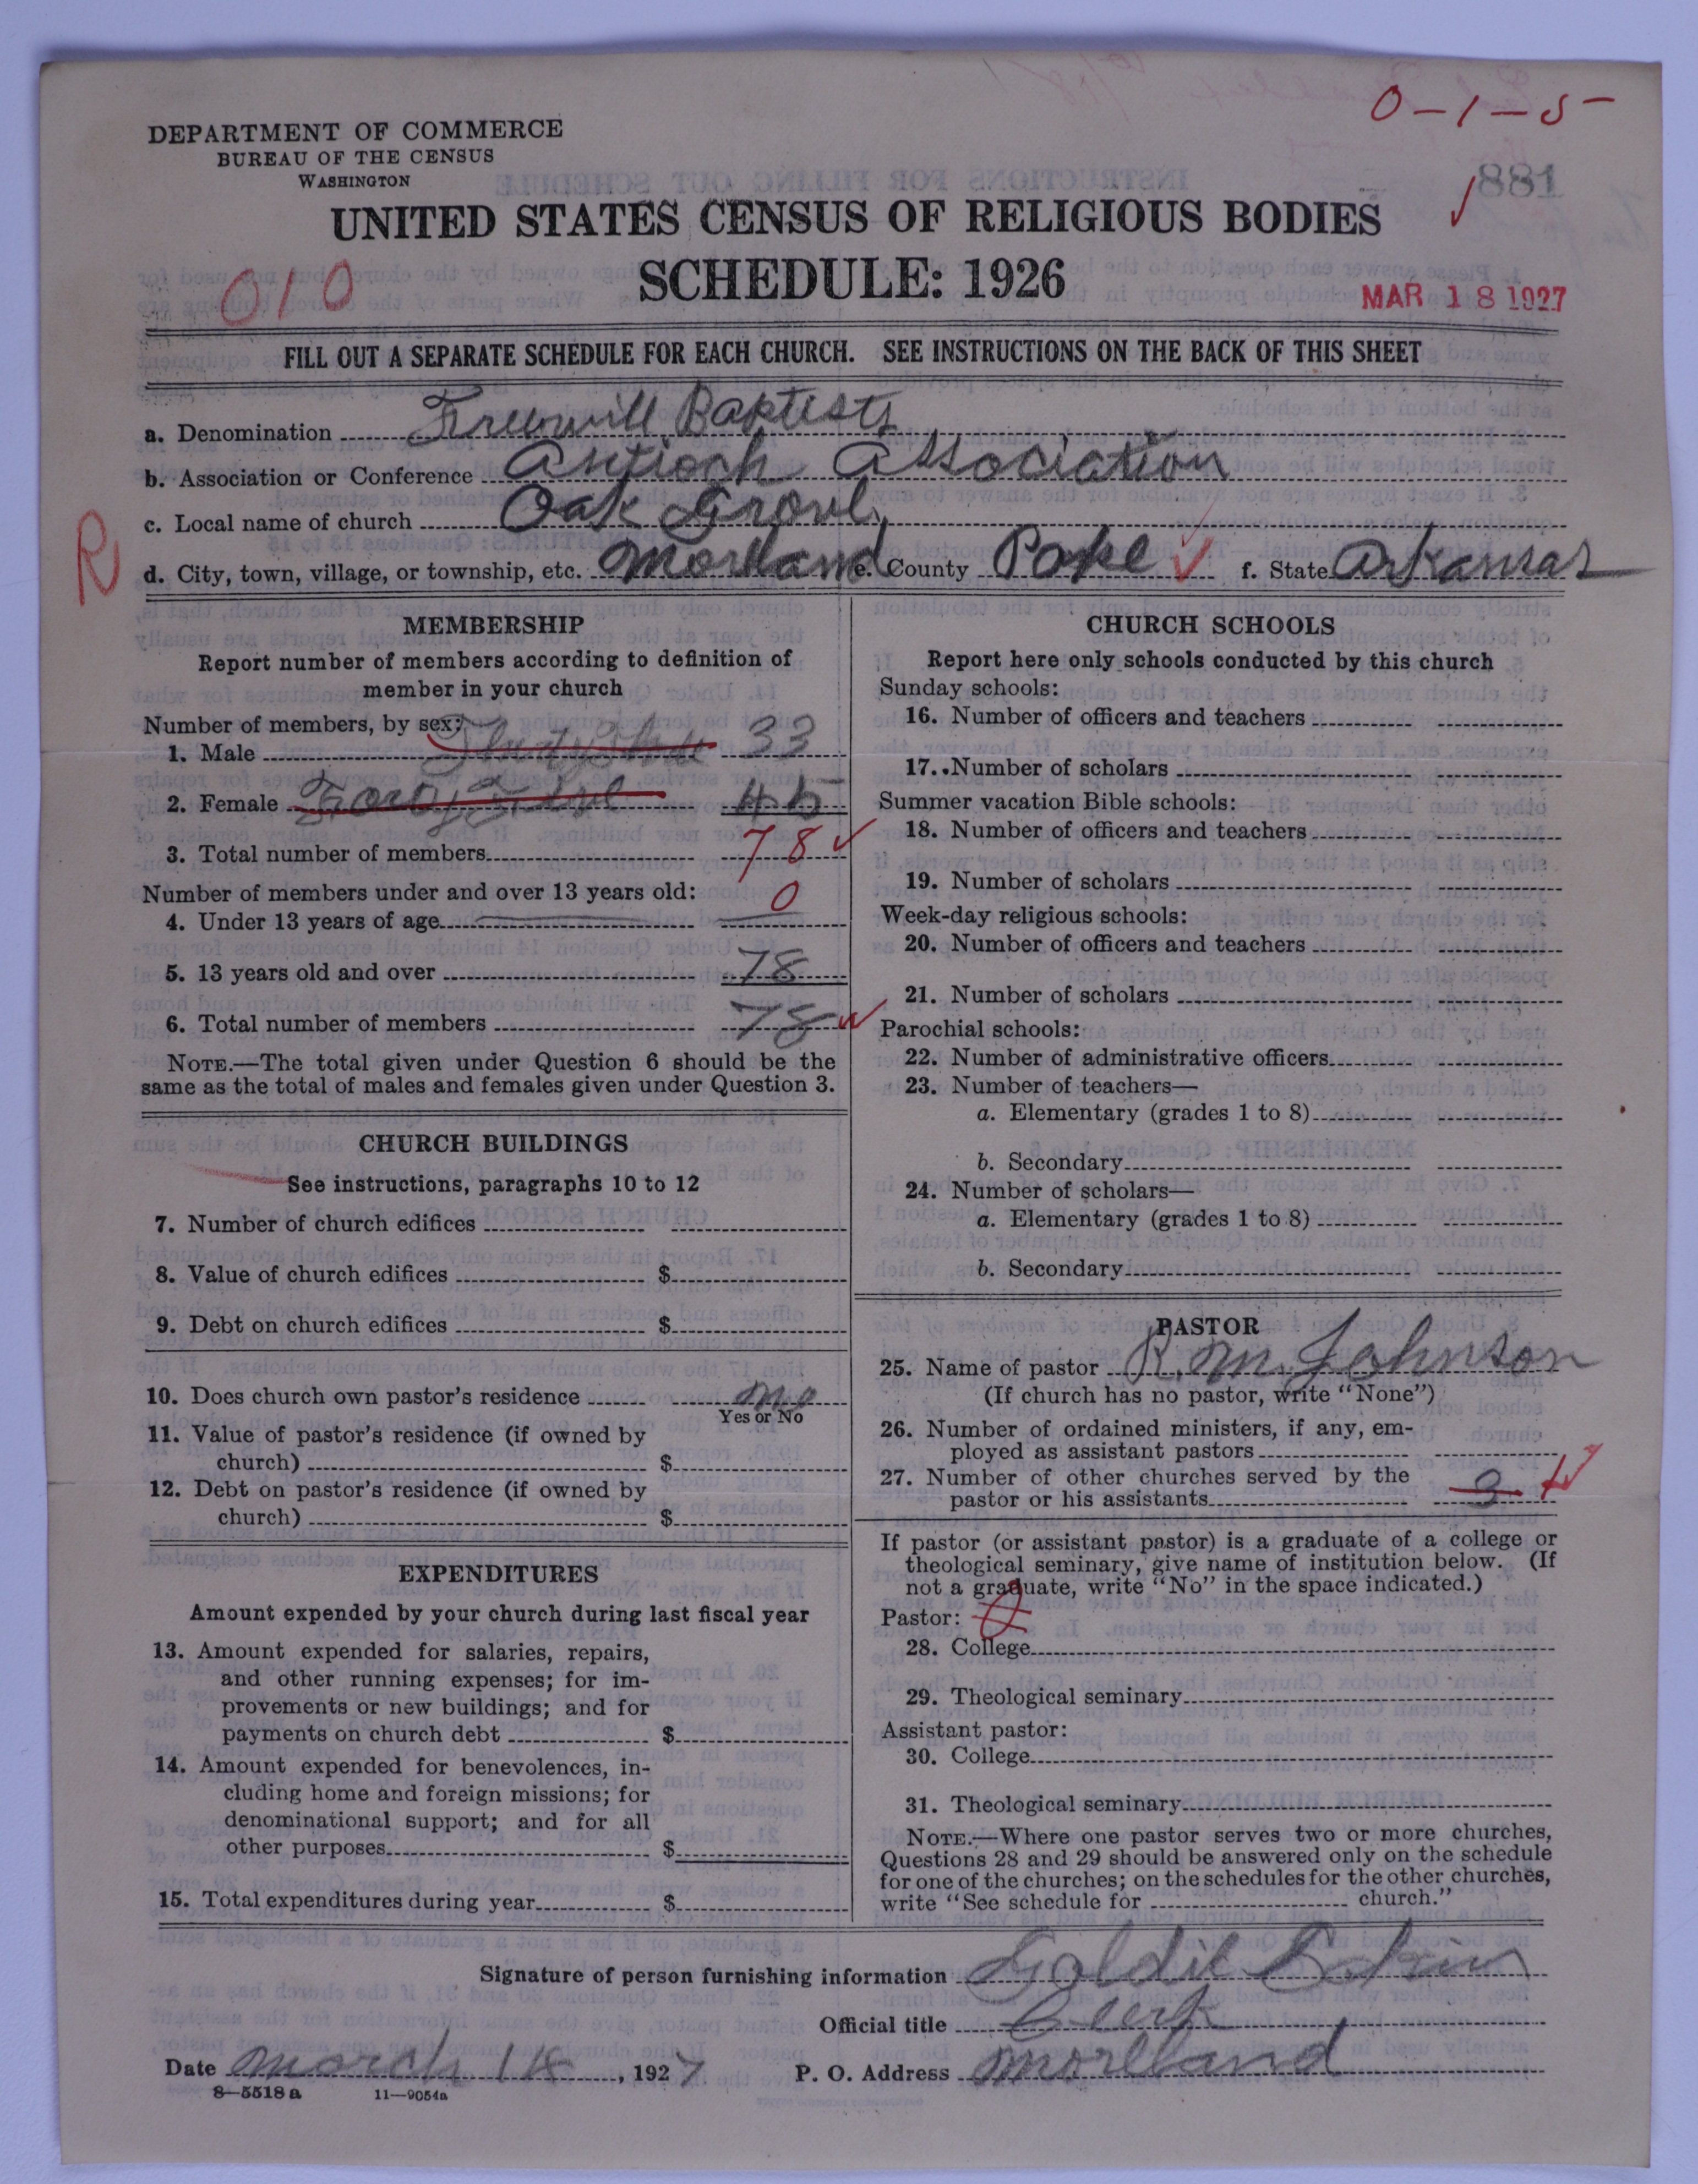 0-1-5
DEPARTMENT OF COMMERCE
BUREAU OF THE CENSUS
WASHINGTON
881
UNITED STATES CENSUS OF RELIGIOUS BODIES
SCHEDULE: 1926
010
MAR 18 1927
FILL OUT A SEPARATE SCHEDULE FOR EACH CHURCH. SEE INSTRUCTIONS ON THE BACK OF THIS SHEET
a. Denomination Freewill Baptists
b. Association or Conference Antioch Association
c. Local name of church Oak Grove
R
d. City, town, village, or township, etc. Moreland e. County Pope f. State Arkansas
MEMBERSHIP
Report number of members according to definition of
member in your church
Number of members, by sex:
1. Male 33
2. Female Forty Five 45
3. Total number of members 78
Number of members under and over 13 years old:
4. Under 13 years of age 0
5. 13 years old and over 78
6. Total number of members 78
NOTE.—The total given under Question 6 should be the
same as the total of males and females given under Question 3.
CHURCH BUILDINGS
See instructions, paragraphs 10 to 12
7. Number of church edifices
8. Value of church edifices $
9. Debt on church edifices $
10. Does church own pastor's residence no
Yes or No
11. Value of pastor's residence (if owned by
church) $
12. Debt on pastor's residence (if owned by
church) $
EXPENDITURES
Amount expended by your church during last fiscal year
13. Amount expended for salaries, repairs,
and other running expenses; for im-
provements or new buildings; and for
payments on church debt $
14. Amount expended for benevolences, in-
cluding home and foreign missions; for
denominational support; and for all
other purposes $
15. Total expenditures during year $
CHURCH SCHOOLS
Report here only schools conducted by this church
Sunday schools:
16. Number of officers and teachers
17. Number of scholars
Summer vacation Bible schools:
18. Number of officers and teachers
19. Number of scholars
Week-day religious schools:
20. Number of officers and teachers
21. Number of scholars
Parochial schools:
22. Number of administrative officers
23. Number of teachers—
a. Elementary (grades 1 to 8)
b. Secondary
24. Number of scholars—
a. Elementary (grades 1 to 8)
b. Secondary
PASTOR
25. Name of pastor R. M. Johnson
(If church has no pastor, write "None")
26. Number of ordained ministers, if any, em-
ployed as assistant pastors
27. Number of other churches served by the
pastor or his assistants 3
If pastor (or assistant pastor) is a graduate of a college or
theological seminary, give name of institution below. (If
not a graduate, write "No" in the space indicated.)
Pastor:
28. College
29. Theological seminary
Assistant pastor:
30. College
31. Theological seminary
NOTE.—Where one pastor serves two or more churches,
Questions 28 and 29 should be answered only on the schedule
for one of the churches; on the schedules for the other churches,
write "See schedule for church."
Signature of person furnishing information Goldie
Official title Clerk
Date March 14, 1927 P. O. Address Moreland
8—5518 a 11—9054a